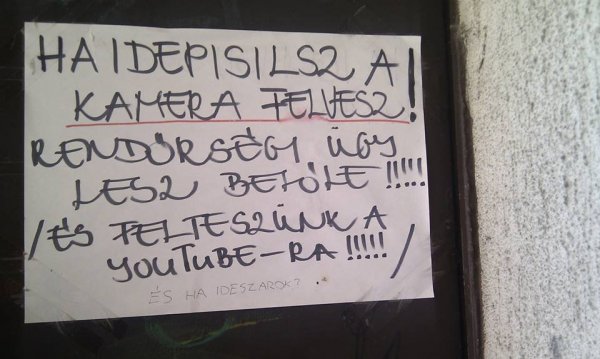 HA IDEPISILSZ A
KAMERA FELVESZ!
RENDŐRSÉGI ÜGY
LESZ BELŐLE!!!!!
/ÉS FELTESZÜNK A
YOUTUBE-RA!!!!!/
ÉS HA IDESZAROK?